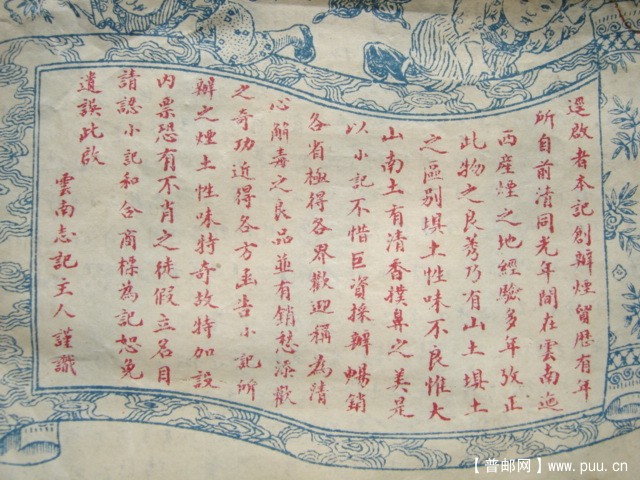 逕啟者本記創辦煙質歷有年
所自前清同光年間在雲南迤
西產煙之地經驗多年攷正
此物之良莠乃有山土埧土
之區別埧土性味不良惟大
山南土有清香撲鼻之美是
以小記不惜巨資採辦暢銷
各省極得各界歡迎稱為清
心解毒之良品並有銷愁添歡
之奇功近得各方函告小記所
辦之煙土性味特奇故特加設
內票恐有不肖之徒假立名目
請認小記和合商標為記恕免
遺誤此啟
雲南志記主人謹識
【普邮网】www.puu.cn